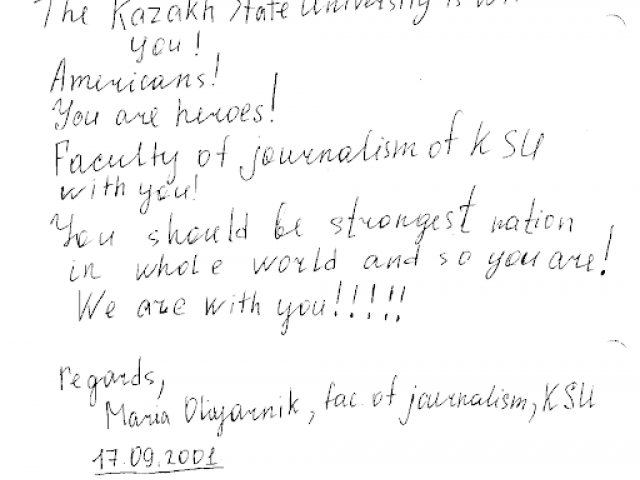 The Kazakh State University is
you!
Americans!
You are heroes!
Faculty of journalism of KSU
with you!
You should be strongest nation
in whole world and so you are!
We are with you!!!!!
regards,
Maria, fac. of journalism, KSU
17.09.2001